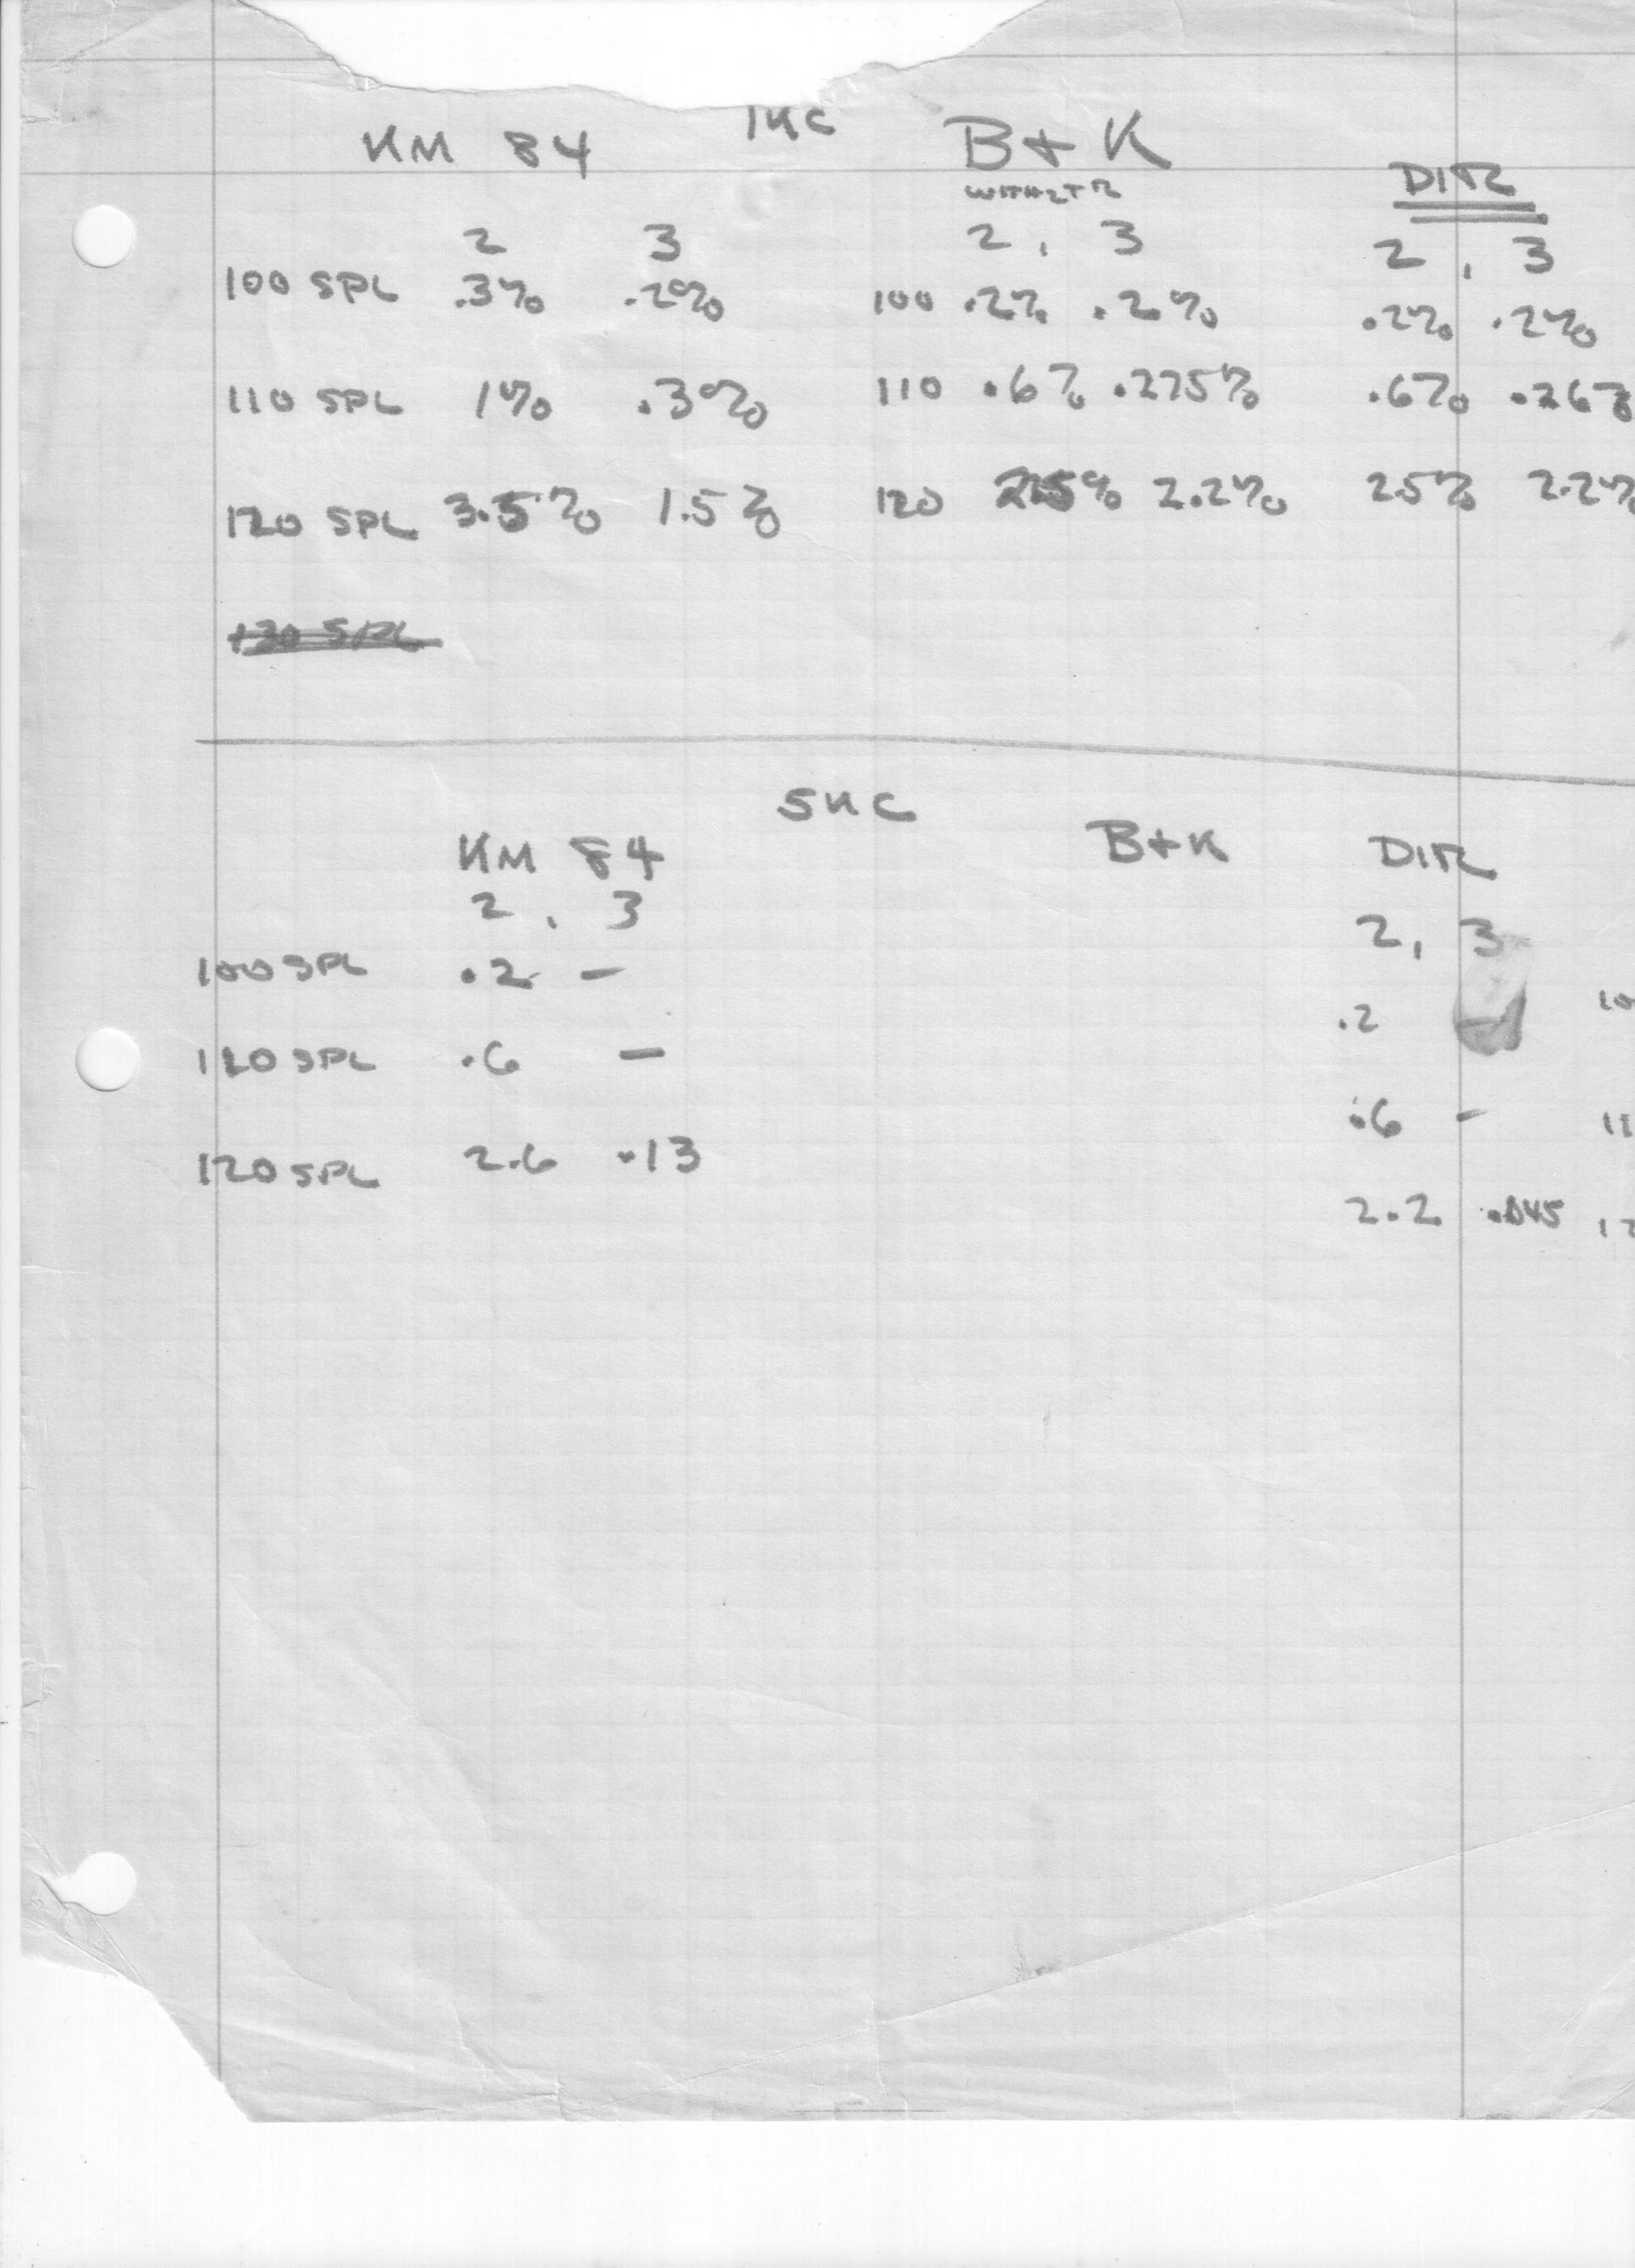 1KC
KM 84 B+K
DIR
2 3 2, 3 2, 3
100 SPL .3% .2% 100 .2% .2% .2% .2%
110 SPL 1% .3% 110 .6% .275% .6% .26%
120 SPL 3.5% 1.5% 120 2.2% 25% 2.2%
130 SPL
5KC
KM 84 B+K DIR
2, 3 2, 3
100 SPL .2 -
.2 - 10
110 SPL .6 -
.6 - 11
120 SPL 2.6 .13
2.2 .045 12